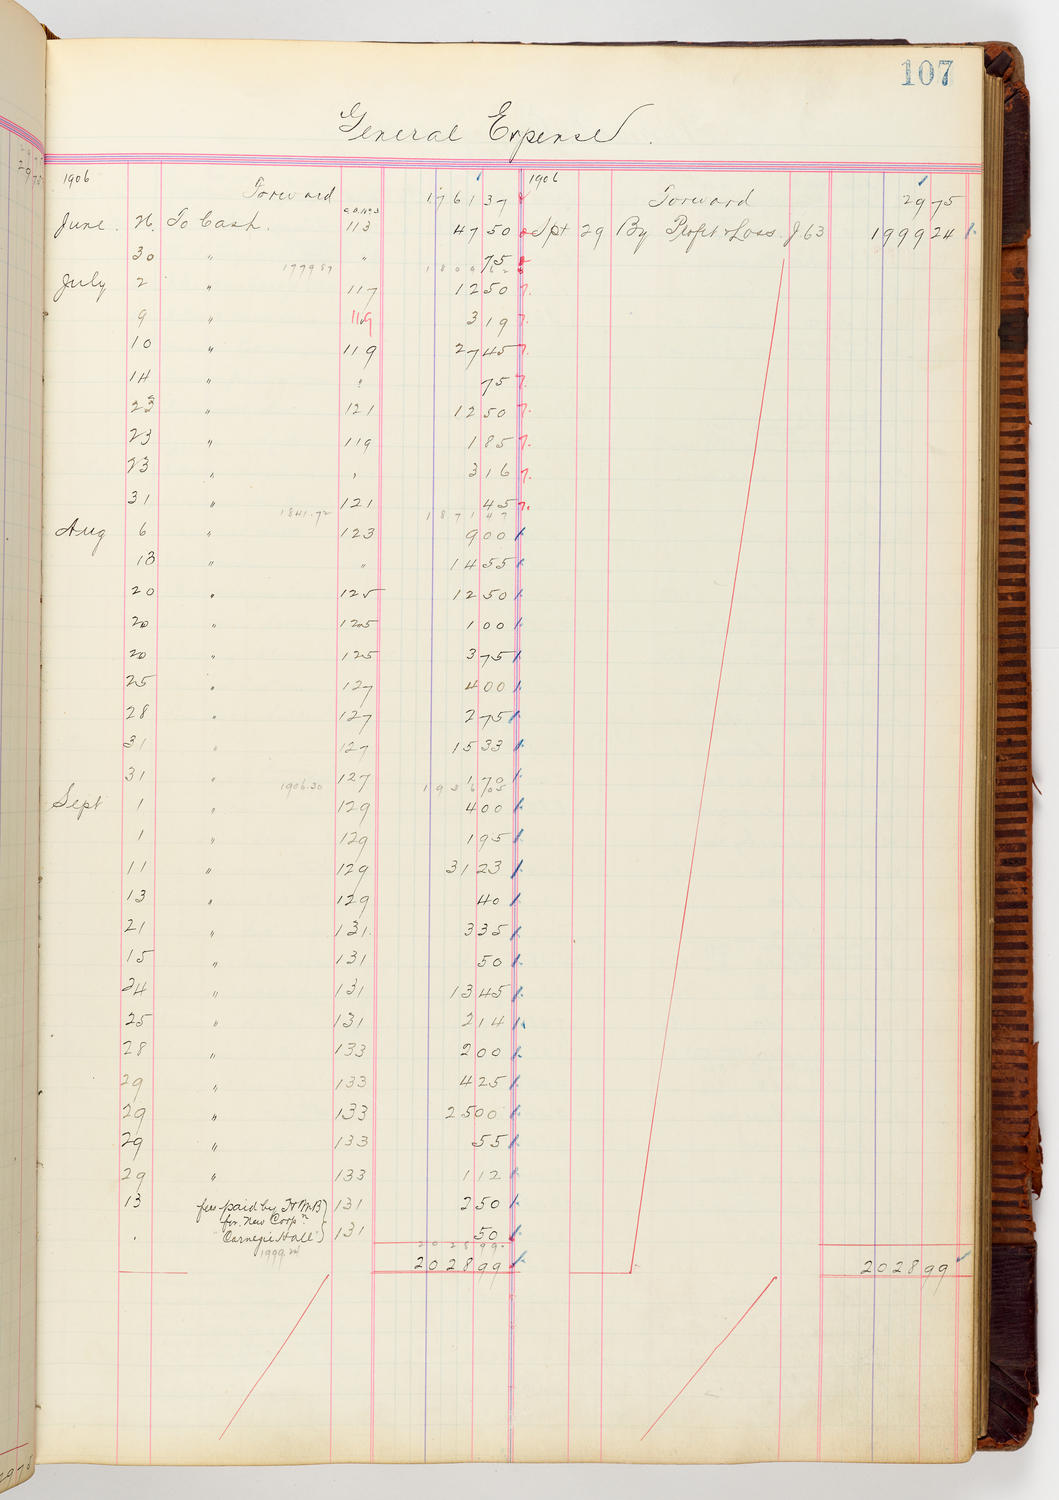 107
General Expense.
1906 1906
Forward 1761 37 Forward 29 75
C.B. No 3
June 26 To Cash. 113 47 50 Sept 29 By Profit & Loss. J 63 1999 24
30 " " 75
1779 87 1809 62
July 2 " 117 12 50
9 " 119 3 19
10 " 119 27 45
14 " " 75
23 " 121 12 50
23 " 119 1 85
23 " " 3 16
31 " 121 45
1841.72 1871 47
Aug 6 " 123 9 00
13 " " 14 55
20 " 125 12 50
20 " 125 1 00
20 " 125 3 75
25 " 127 4 00
28 " 127 2 75
31 " 127 15 33
31 " 127 1 70
1906.30 1936 05
Sept 1 " 129 4 00
1 " 129 1 95
11 " 129 31 23
13 " 129 40
21 " 131. 3 35
15 " 131 50
24 " 131 13 45
25 " 131 2 14
28 " 133 2 00
29 " 133 4 25
29 " 133 25 00
29 " 133 55
29 " 133 1 12
13 fees paid by 131 2 50
for New Corpn
"Carnegie Hall" 131 50
1999.24 2028 99
2028 99 2028 99